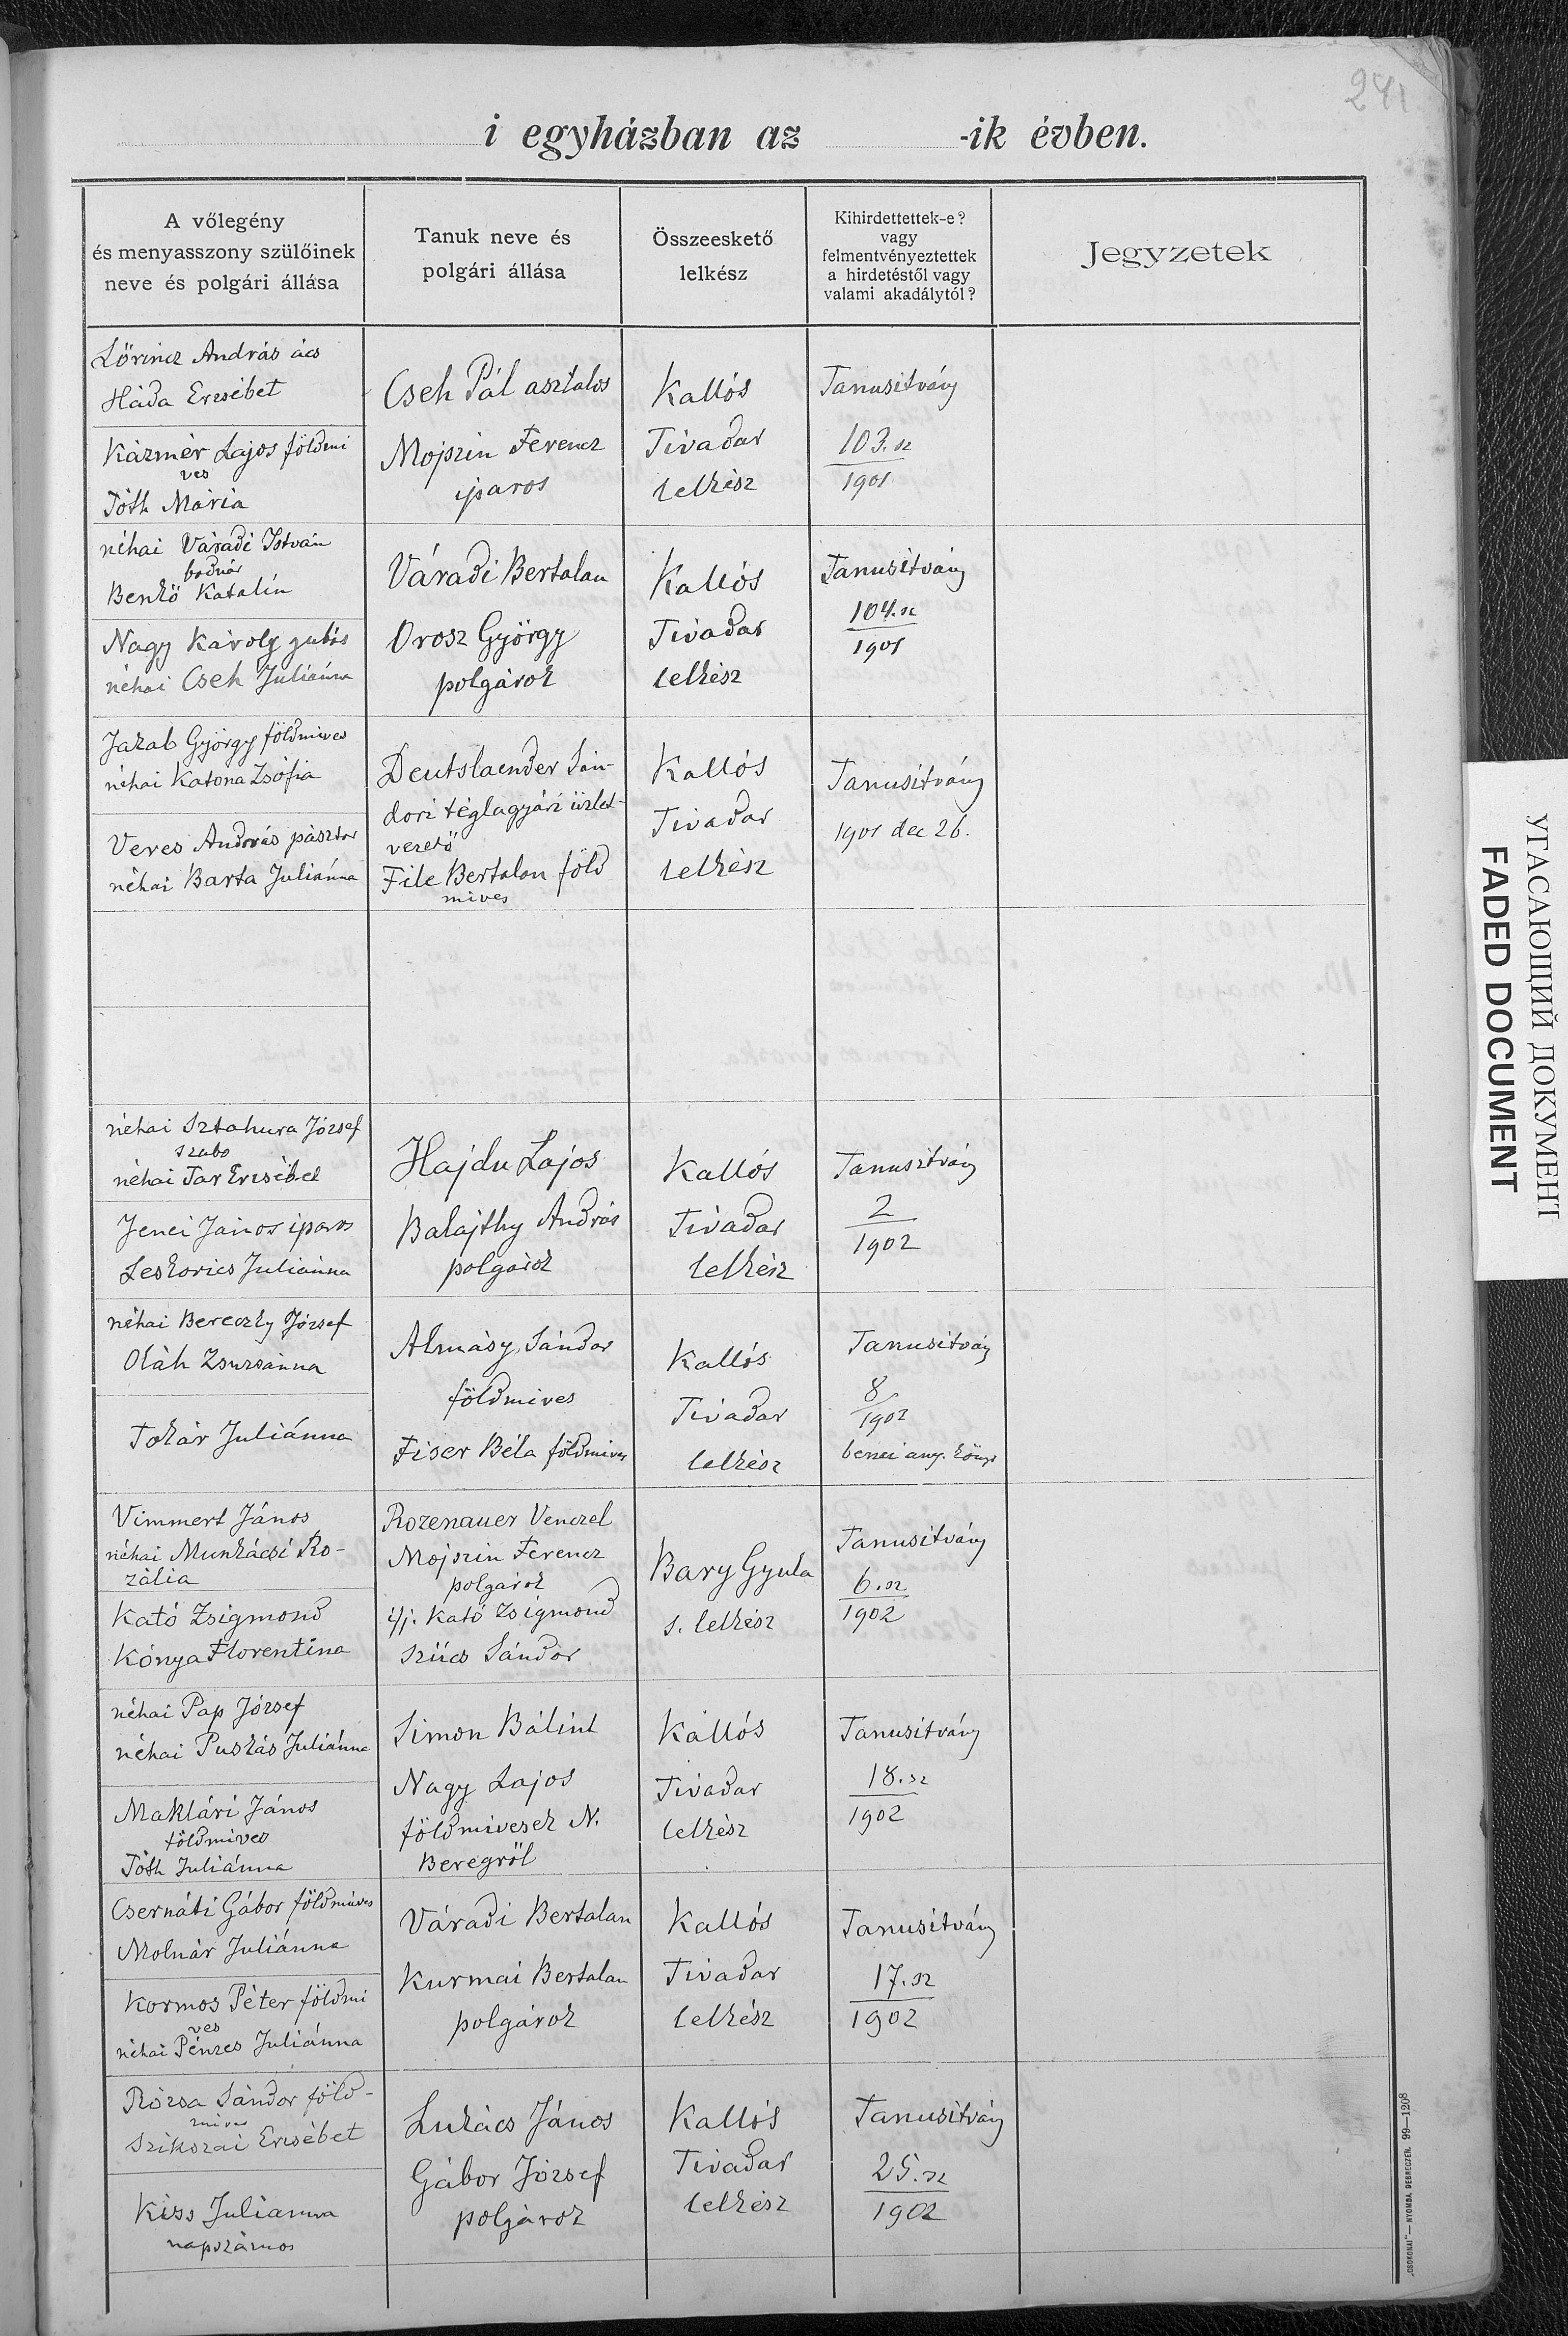 241
i egyházban az -ik évben.
A vőlegény
és menyasszony szülőinek
neve és polgári állása
Tanuk neve és
polgári állása
Összeeskető
lelkész
Kihirdettettek-e?
vagy
felmentvényeztettek
a hirdetéstől vagy
valami akadálytól?
Jegyzetek
Lőrincz András ács
Háda Erzsébet
Kázmér Lajos földmi
ves
Tóth Mária
Cseh Pál asztalos
Mojszin Ferencz
iparos
Kallós
Tivadar
lelkész
Tanusitvány
103. sz
1901
néhai Váradi István
bodnár
Benkő Katalin
Nagy Károly gubás
néhai Cseh Juliánna
Váradi Bertalan
Orosz György
polgárok
Kallós
Tivadar
lelkész
Tanusitvány
104. sz
1901
Jakab György földmives
néhai Katona Zsófia
Veres András pásztor
néhai Barta Juliánna
Deutslaender Sán-
dori téglagyári üzlet-
vezető
File Bertalan föld
mives
Kallós
Tivadar
lelkész
Tanusitvány
1901 dec 26.
néhai Sztahura József
szabo
néhai Tar Erzsébet
Jenei János iparos
Leskovics Juliánna
Hajdu Lajos
Balajthy András
polgárok
Kallós
Tivadar
lelkész
Tanusitvány
2
1902
néhai Bereczky József
Oláh Zsuzsánna
Tokár Juliánna
Almásy Sándor
földmives
Fiser Béla földmives
Kallós
Tivadar
lelkész
Tanusitvány
8
1902
benei any. könyv
Vimmert János
néhai Munkácsi Ro-
zália
Kató Zsigmond
Kónya Florentina
Rozenauer Venczel
Mojszin Ferencz
polgárok
ifj. Kató Zsigmond
Szücs Sándor
Bary Gyula
s. lelkész
Tanusitvány
6. sz
1902
néhai Pap József
néhai Puskás Juliánna
Maklári János
földmives
Tóth Juliánna
Simon Bálint
Nagy Lajos
földmivesek N.
Beregről
Kallós
Tivadar
lelkész
Tanusitvány
18. sz
1902
Csernáti Gábor földmives
Molnár Juliánna
Kormos Péter földmi
ves
néhai Pénzes Juliánna
Váradi Bertalan
Kurmai Bertalan
polgárok
Kallós
Tivadar
lelkész
Tanusitvány
17. sz
1902
Rózsa Sándor föld-
mives
Szikszai Erzsébet
Kiss Julianna
napszámos
Lukács János
Gábor József
polgárok
Kallós
Tivadar
lelkész
Tanusitvány
25. sz
1902
„CSOKONAI"—NYOMDA, DEBRECZEN. 99—1208
УГАСАЮЩИЙ ДОКУМЕНТ
FADED DOCUMENT